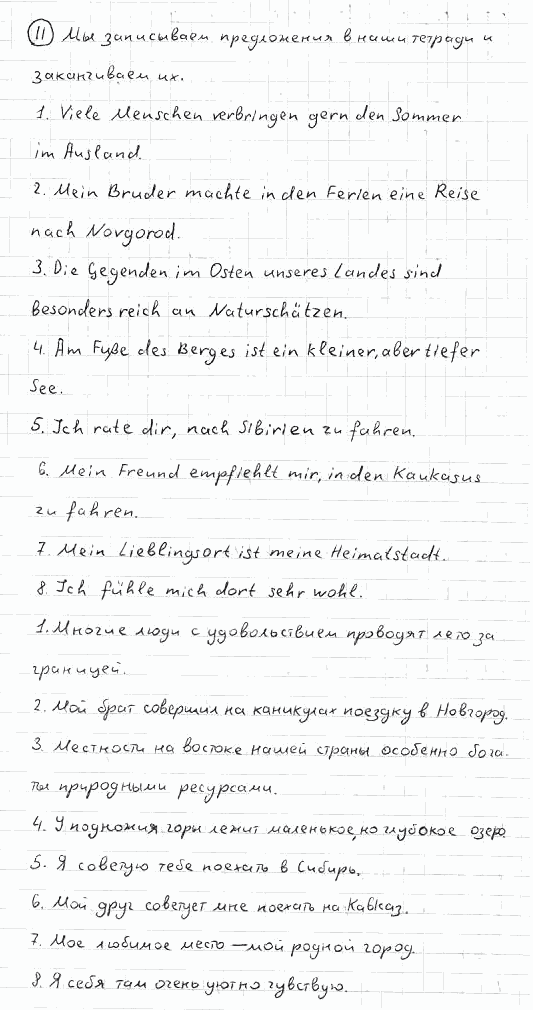 11 Мы записываем предложения в наши тетради и
заканчиваем их.
1. Viele Menschen verbringen gern den Sommer
im Ausland.
2. Mein Bruder machte in den Ferien eine Reise
nach Novgorod.
3. Die Gegenden im Osten unseres Landes sind
besonders reich an Naturschätzen.
4. Am Fuße des Berges ist ein kleiner, aber tiefer
See.
5. Ich rate dir, nach Sibirien zu fahren.
6. Mein Freund empfiehlt mir, in den Kaukasus
zu fahren.
7. Mein Lieblingsort ist meine Heimatstadt.
8. Ich fühle mich dort sehr wohl.
1. Многие люди с удовольствием проводят лето за
границей.
2. Мой брат совершил на каникулах поездку в Новгород.
3. Местности на востоке нашей страны особенно бога-
ты природными ресурсами.
4. У подножия горы лежит маленькое, но глубокое озеро.
5. Я советую тебе поехать в Сибирь.
6. Мой друг советует мне поехать на Кавказ.
7. Мое любимое место – мой родной город.
8. Я себя там очень уютно чувствую.